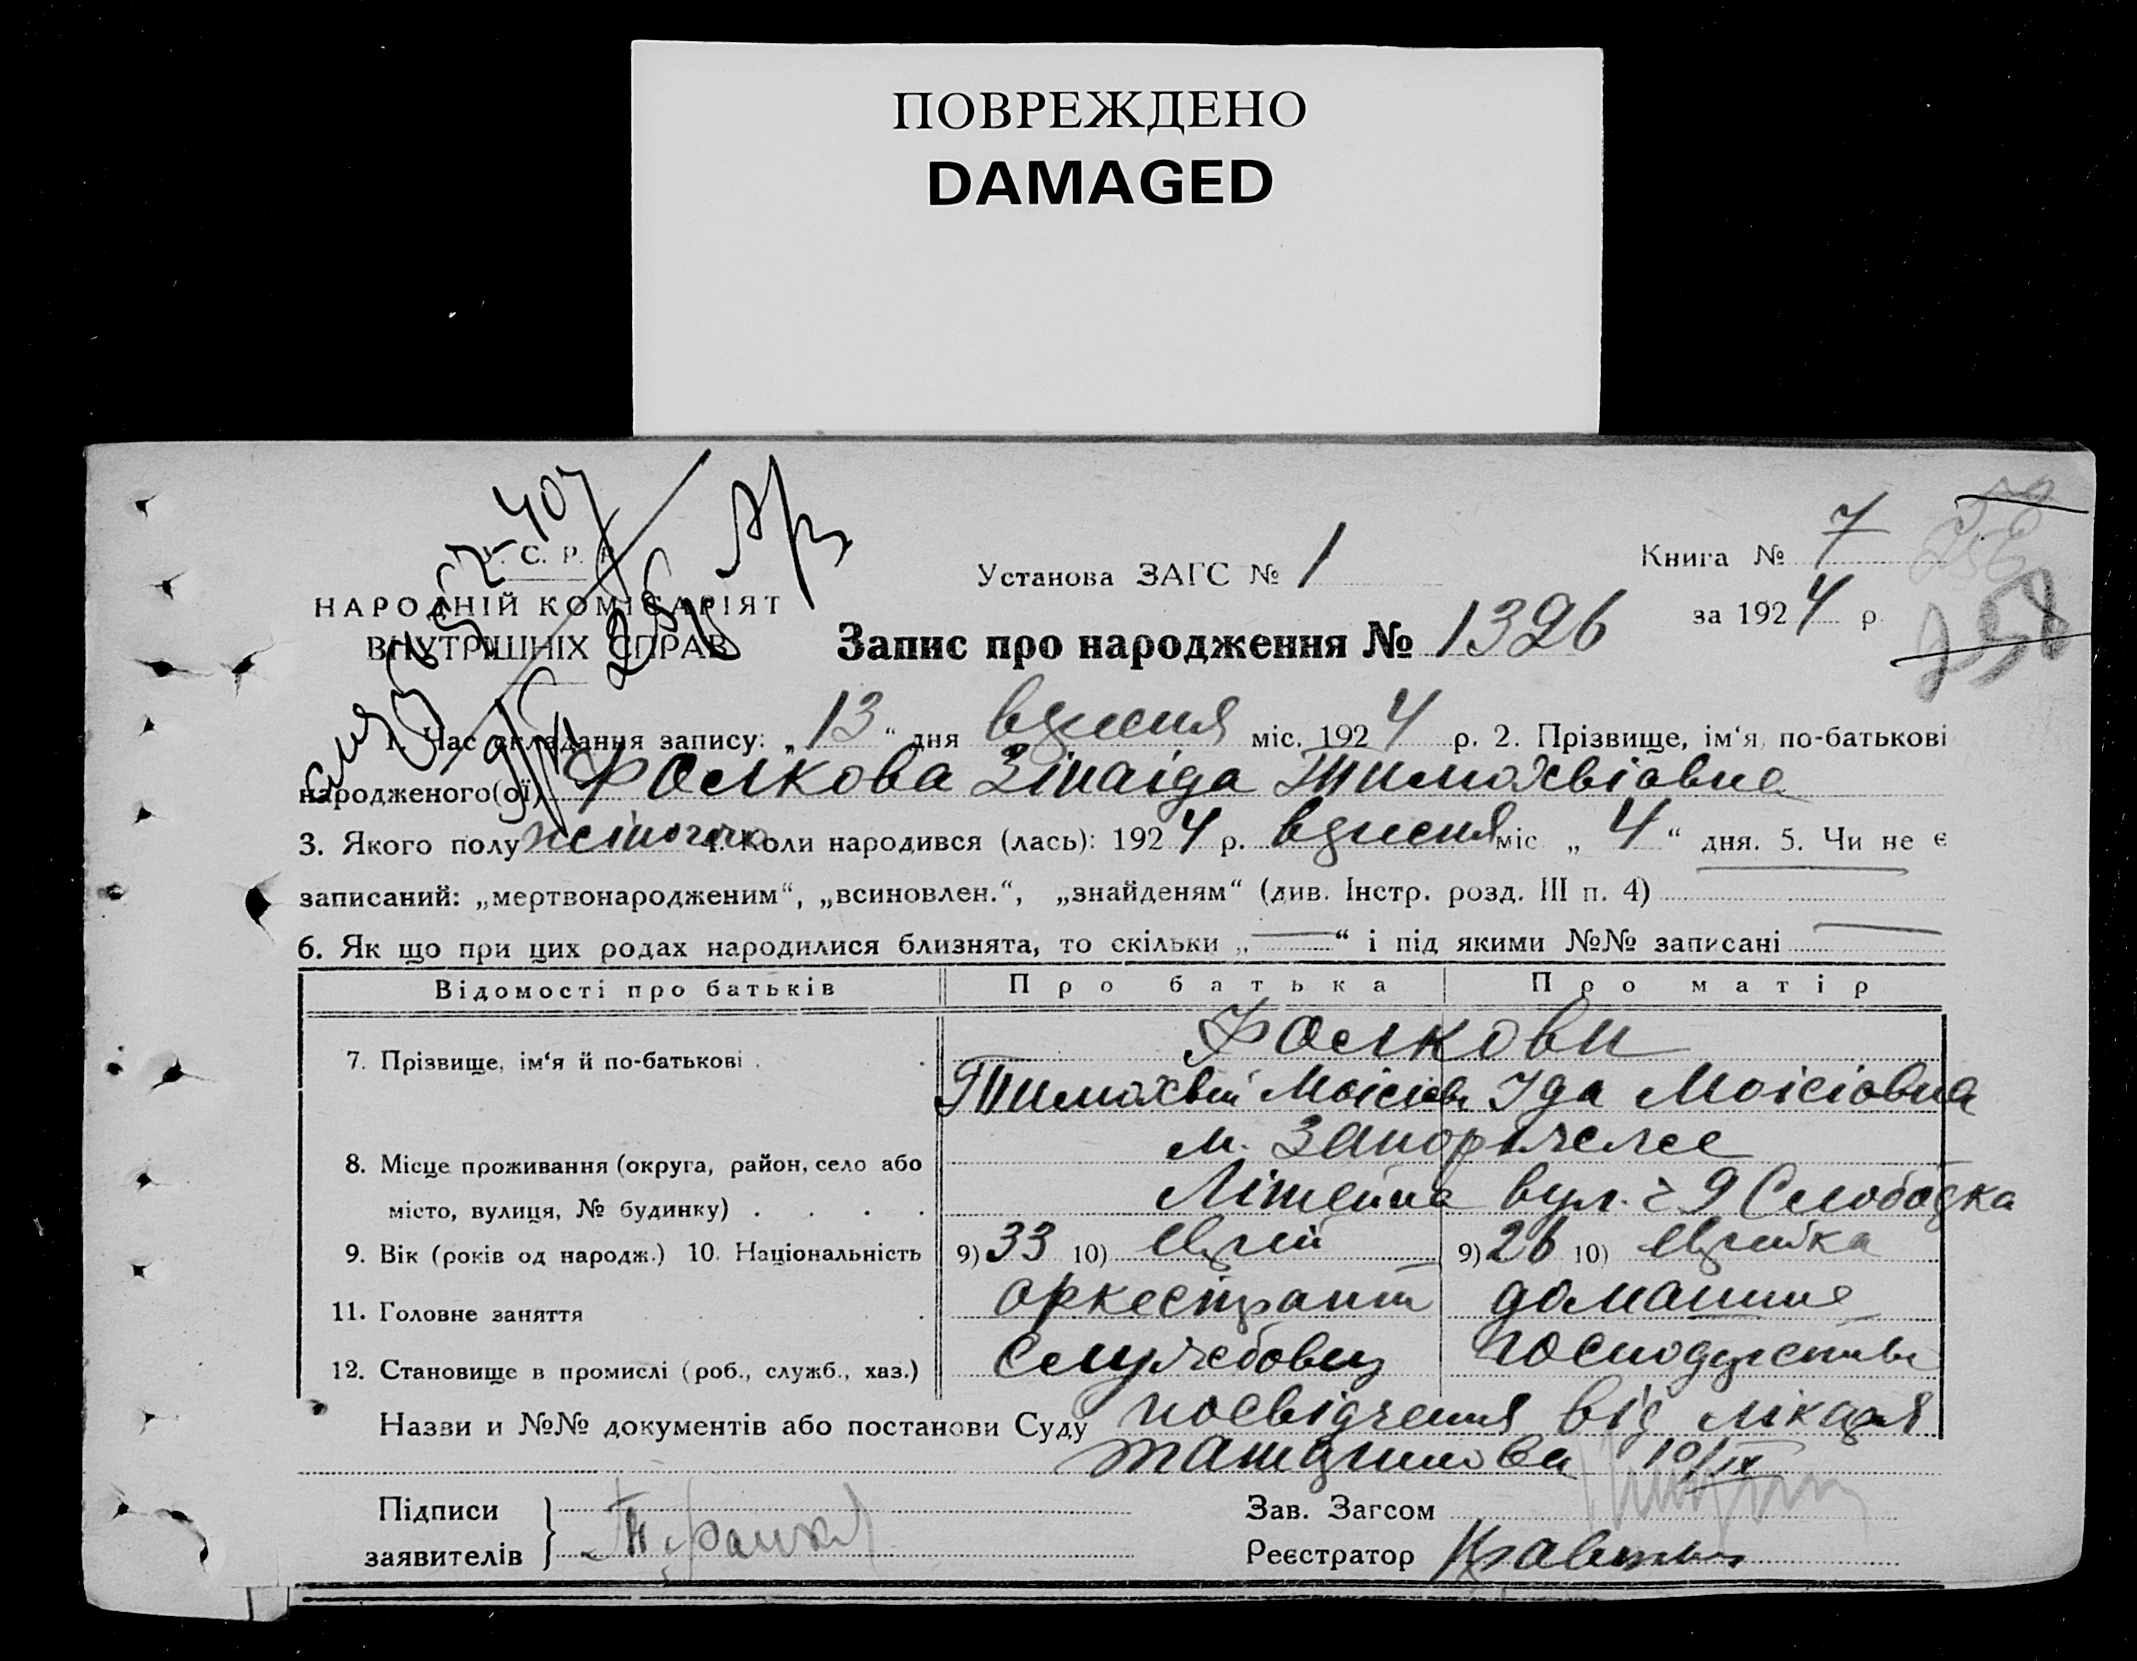 ПОВРЕЖДЕНО
DAMAGED
У. С. Р. Р.
НАРОДНІЙ КОМІСАРІЯТ
ВНУТРІШНІХ СПРАВ
Установа ЗАГС № 1
Книга № 7
за 1924 р.
258
Запис про народження № 1326
1. Час складання запису: „13“ дня вдресня міс. 1924 р. 2. Прізвище, ім‘я, по-батькові
народженого(ої) Фолкова Зінаіда Тимохвіовна
3. Якого полу жіночого 4. Коли народився (лась): 1924 р. вдресня міс „4“ дня. 5. Чи не є
записаний: „мертвонародженим“, „всиновлен.“, „знайденям“ (див. Інстр. розд. III п. 4)
6. Як що при цих родах народилися близнята, то скільки „—“ і під якими №№ записані —
Відомості про батьків Про батька Про матір
7. Прізвище, ім‘я й по-батькові . . Фолкови
Тимохвій Моісієв Ида Моісіовна
8. Місце проживання (округа, район, село або м. Запоріжже
місто, вулиця, № будинку) . . . . Літейна вул. 9 Слободка
9. Вік (років од народж.) 10. Національність 9) 33 10) Єврей 9) 26 10) Єврейка
11. Головне заняття . . . . оркестрант домашнє
12. Становище в промислі (роб., служб., хаз.) Службовец господарство
Назви и №№ документів або постанови Суду посвідчення від лікаря
10/IX
Підписи
заявителів
Зав. Загсом
Реєстратор